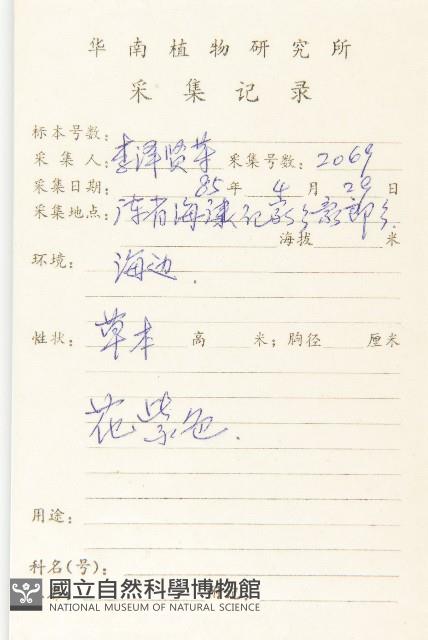 华南植物研究所
采集记录
标本号数：
采集人：李泽贤等 采集号数：2069
采集日期： 85年 4月 29日
采集地点：海
海拔 米
环境：海边.
性状：草本 高 米；胸径 厘米
花紫色.
用途：
科名(号)：
國立自然科學博物館
NATIONAL MUSEUM OF NATURAL SCIENCE